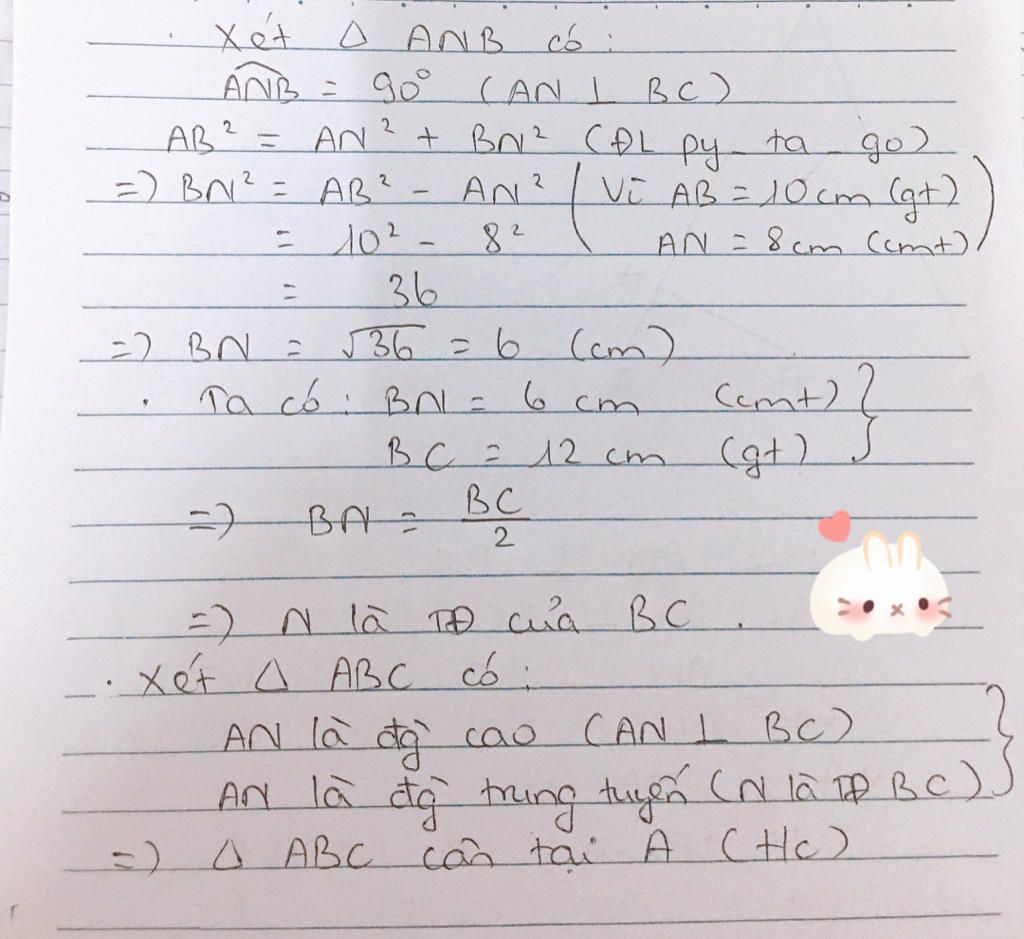 . Xét Δ ANB có :
ANB = 90° (AN ⊥ BC)
AB² = AN² + BN² (ĐL py_ta_go)
=) BN² = AB² - AN² (Vì AB = 10 cm (gt)
= 10² - 8² AN = 8 cm (cmt))
= 36
=) BN = √36 = 6 (cm)
. Ta có : BN = 6 cm (cmt) }
BC = 12 cm (gt)
=) BN = BC/2
=) N là TĐ của BC .
. Xét Δ ABC có :
AN là đg̀ cao (AN ⊥ BC) }
AN là đg̀ trung tuyến (N là TĐ BC)
=) Δ ABC cân tại A (t/c)